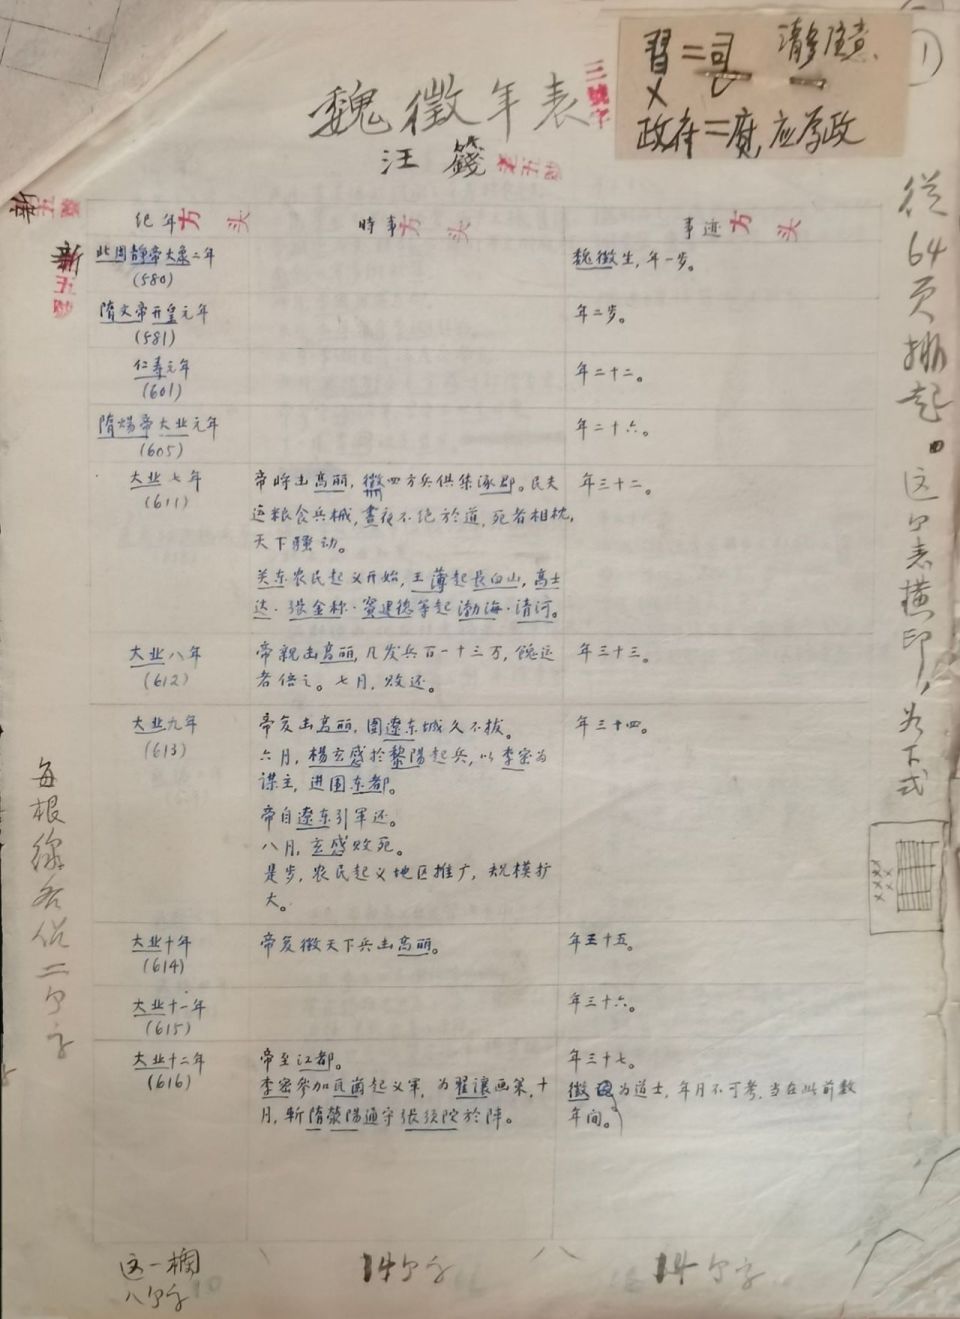 ①
習=司 請多注意
政府=府,应为政
魏徵年表
三號字
汪籛
老五號
新五號
新五號
纪年 方头
時事 方头
事迹 方头
北周静帝大象二年
(580)
魏徵生,年一岁。
隋文帝开皇元年
(581)
年二岁。
仁寿元年
(601)
年二十二。
隋煬帝大业元年
(605)
年二十六。
大业七年
(611)
帝将击高丽,徵四方兵俱集涿郡。民夫
运粮食兵械,晝夜不绝於道,死者相枕,
天下骚动。
关东农民起义开始,王薄起長白山,高士
达·张金称·竇建德等起渤海·清河。
年三十二。
大业八年
(612)
帝親击高丽,凡发兵百一十三万,餽运
者倍之。七月,败还。
年三十三。
大业九年
(613)
帝复击高丽,圍遼东城久不拔。
六月,楊玄感於黎陽起兵,以李密为
谋主,进圍东都。
帝自遼东引军还。
八月,玄感败死。
是岁,农民起义地区推广,规模扩
大。
年三十四。
大业十年
(614)
帝复徵天下兵击高丽。
年三十五。
大业十一年
(615)
年三十六。
大业十二年
(616)
帝至江都。
李密参加瓦崗起义军,为翟讓画策,十
月,斬隋滎陽通守张须陀於陣。
年三十七。
徵为道士,年月不可考,当在此前数
年间。
從64页排起。这个表横印,为下式
每根线各低二个字
这一栏
八个字
14个字
14个字